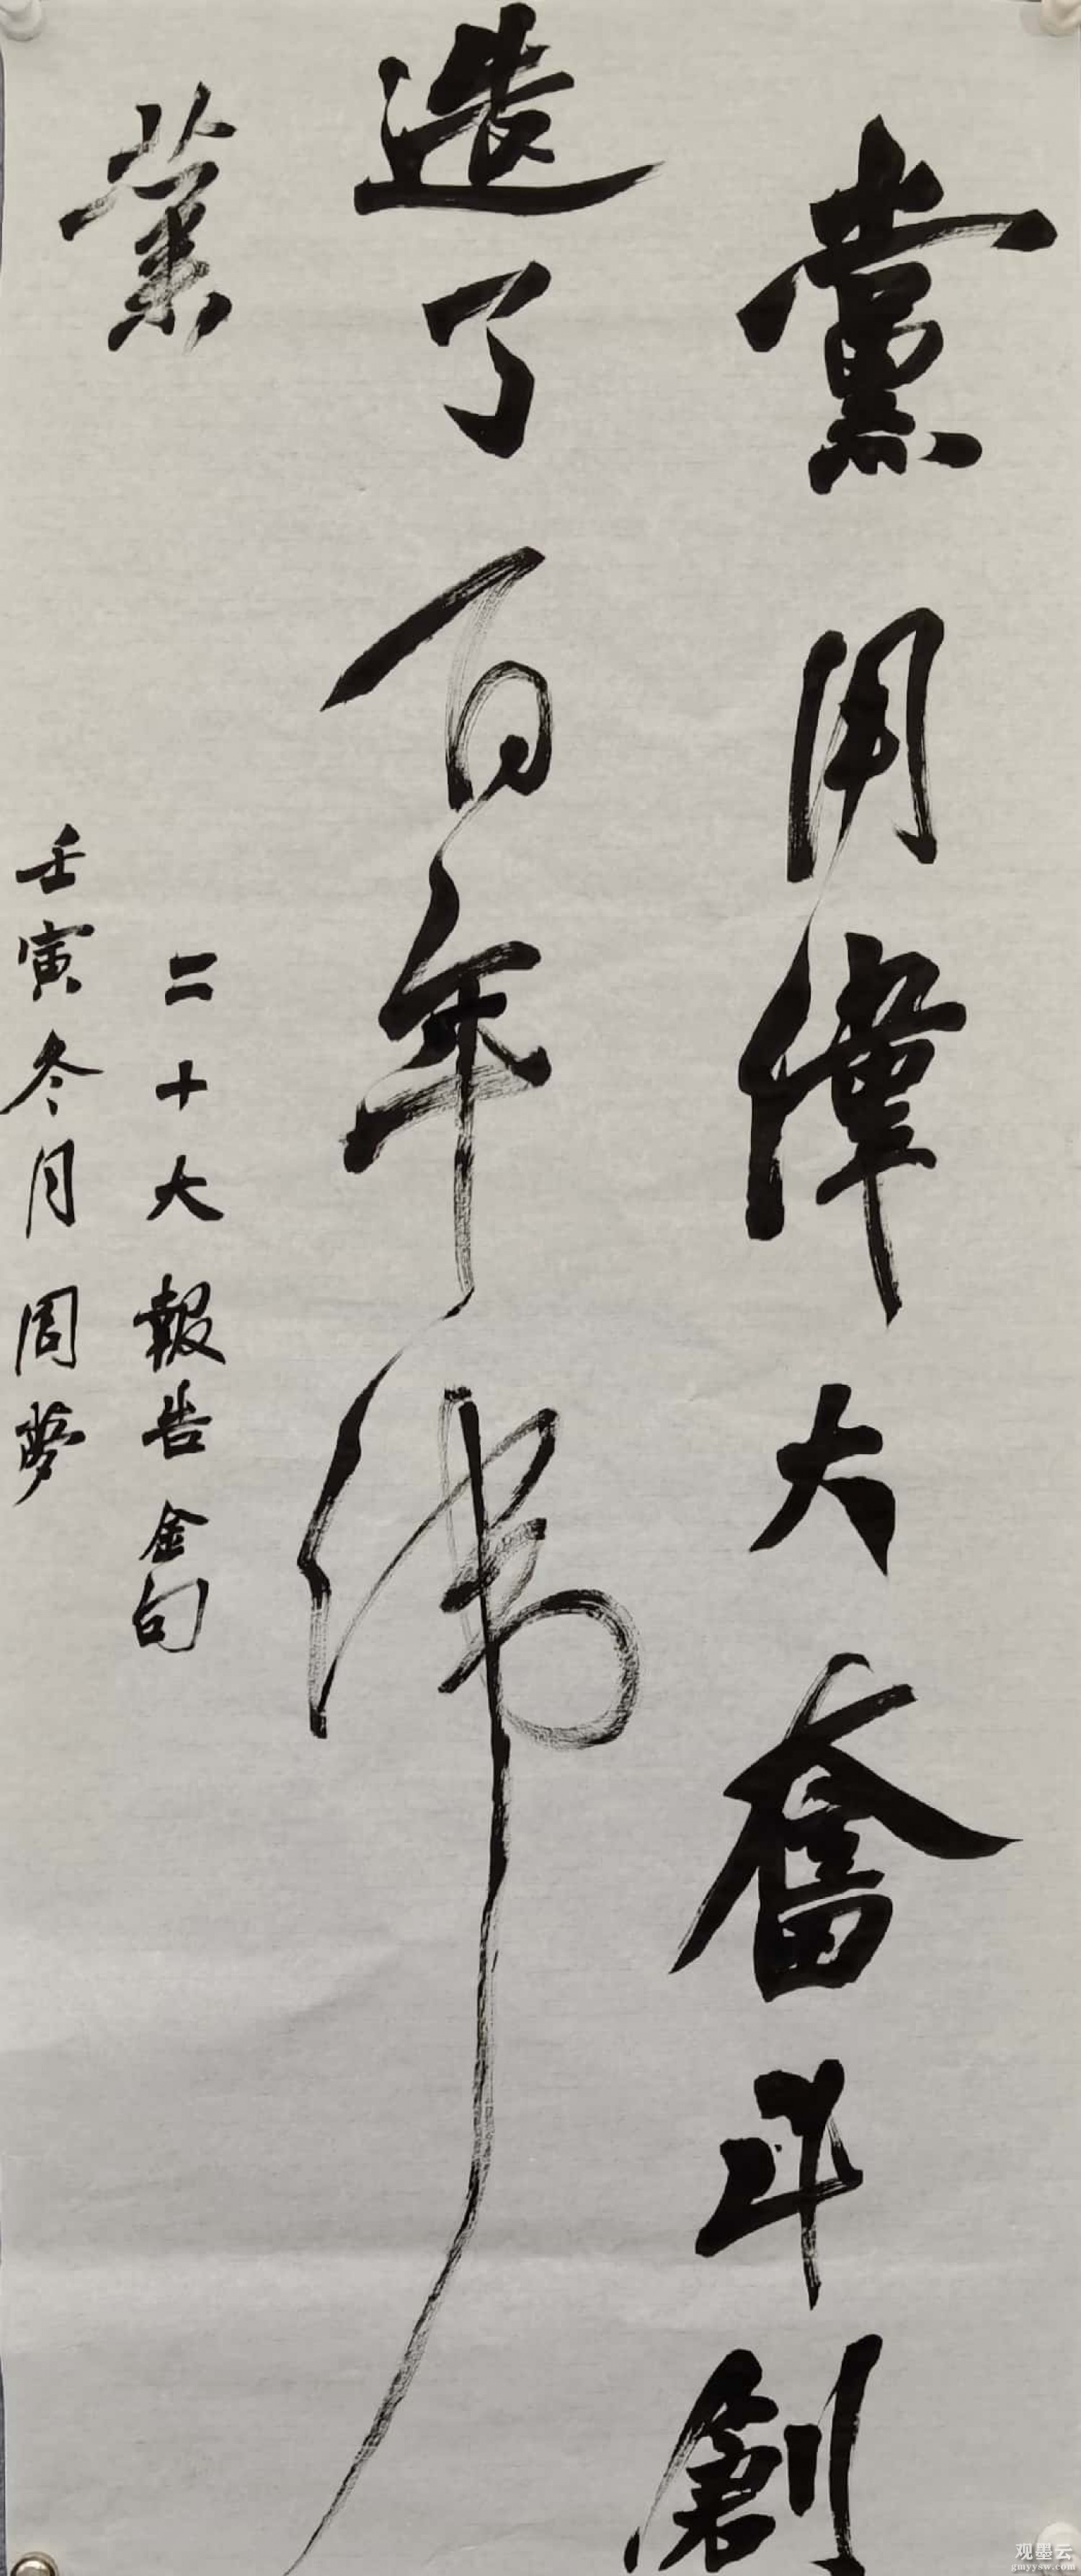 黨用偉大奮斗創
造了百年伟
業
二十大報告金句
壬寅冬月周夢
观墨云
gmyysw.com